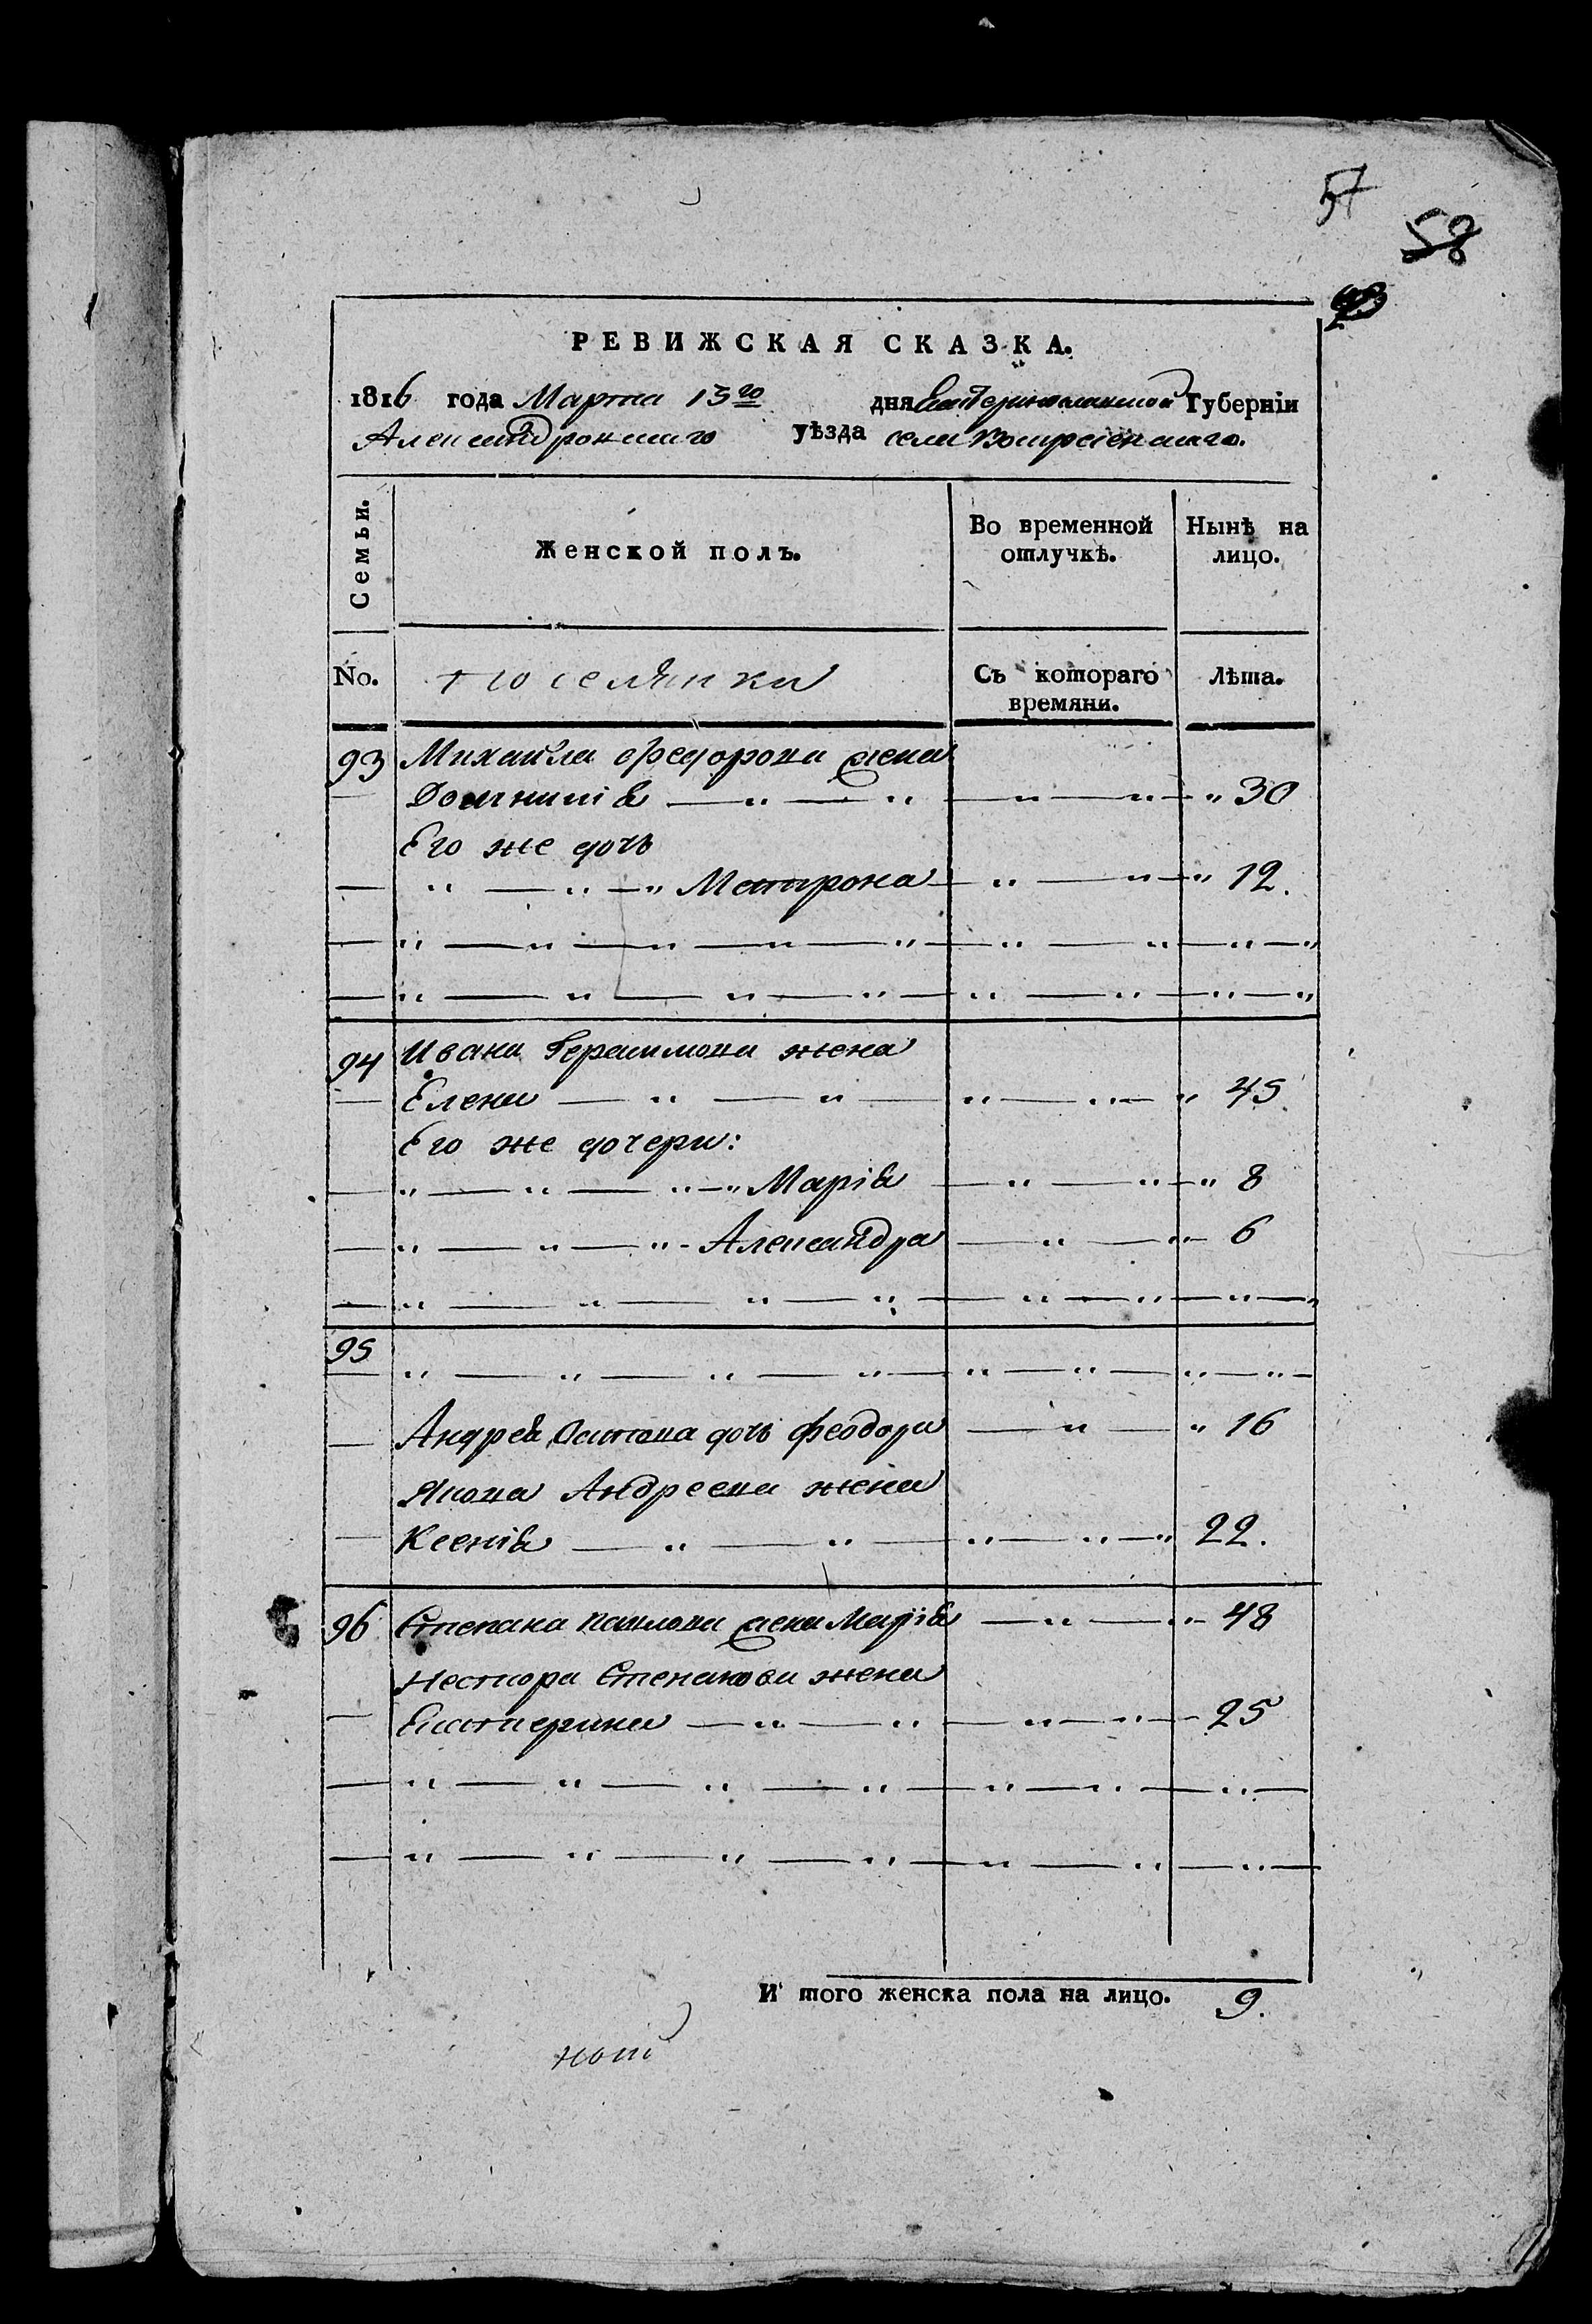 57
58
РЕВИЖСКАЯ СКАЗКА.
1816 года Марта 13го дня Екатеринославской Губерніи
Александровскаго уѣзда села Воскресенскаго.
Семьи. Женской полъ. Во временной отлучкѣ. Нынѣ на лицо.
No. поселянки Съ котораго времяни. Лѣта.
93 Михайла Федорова жена
Домникія — " — " — " — " — " 30
Его же дочь
— " — " — " Матрона — " — " — " 12.
— " — " — " — " — " — " — " — " — "
— " — " — " — " — " — " — " — " — "
94 Ивана Герасимова жена
— Елена — " — " — " — " — " 45
Его же дочери:
— " — " — " — " Марія — " — " — " 8
— " — " — " - Александра — " — " — 6
— " — " — " — " — " — " — " — "
95
— " — " — " — " — " — " — " — " —
— Андрея Осипова дочь Феодора — " — " 16
Якова Андреева жена
— Ксенія — " — " — " — " — " 22.
96 Степана Павлова жена Марія — " — " — 48
Нестора Степанова жена
— Екатерина — " — " — " — " — 25
— " — " — " — " — " — " — " —
— " — " — " — " — " — " — " —
И того женска пола на лицо. 9.